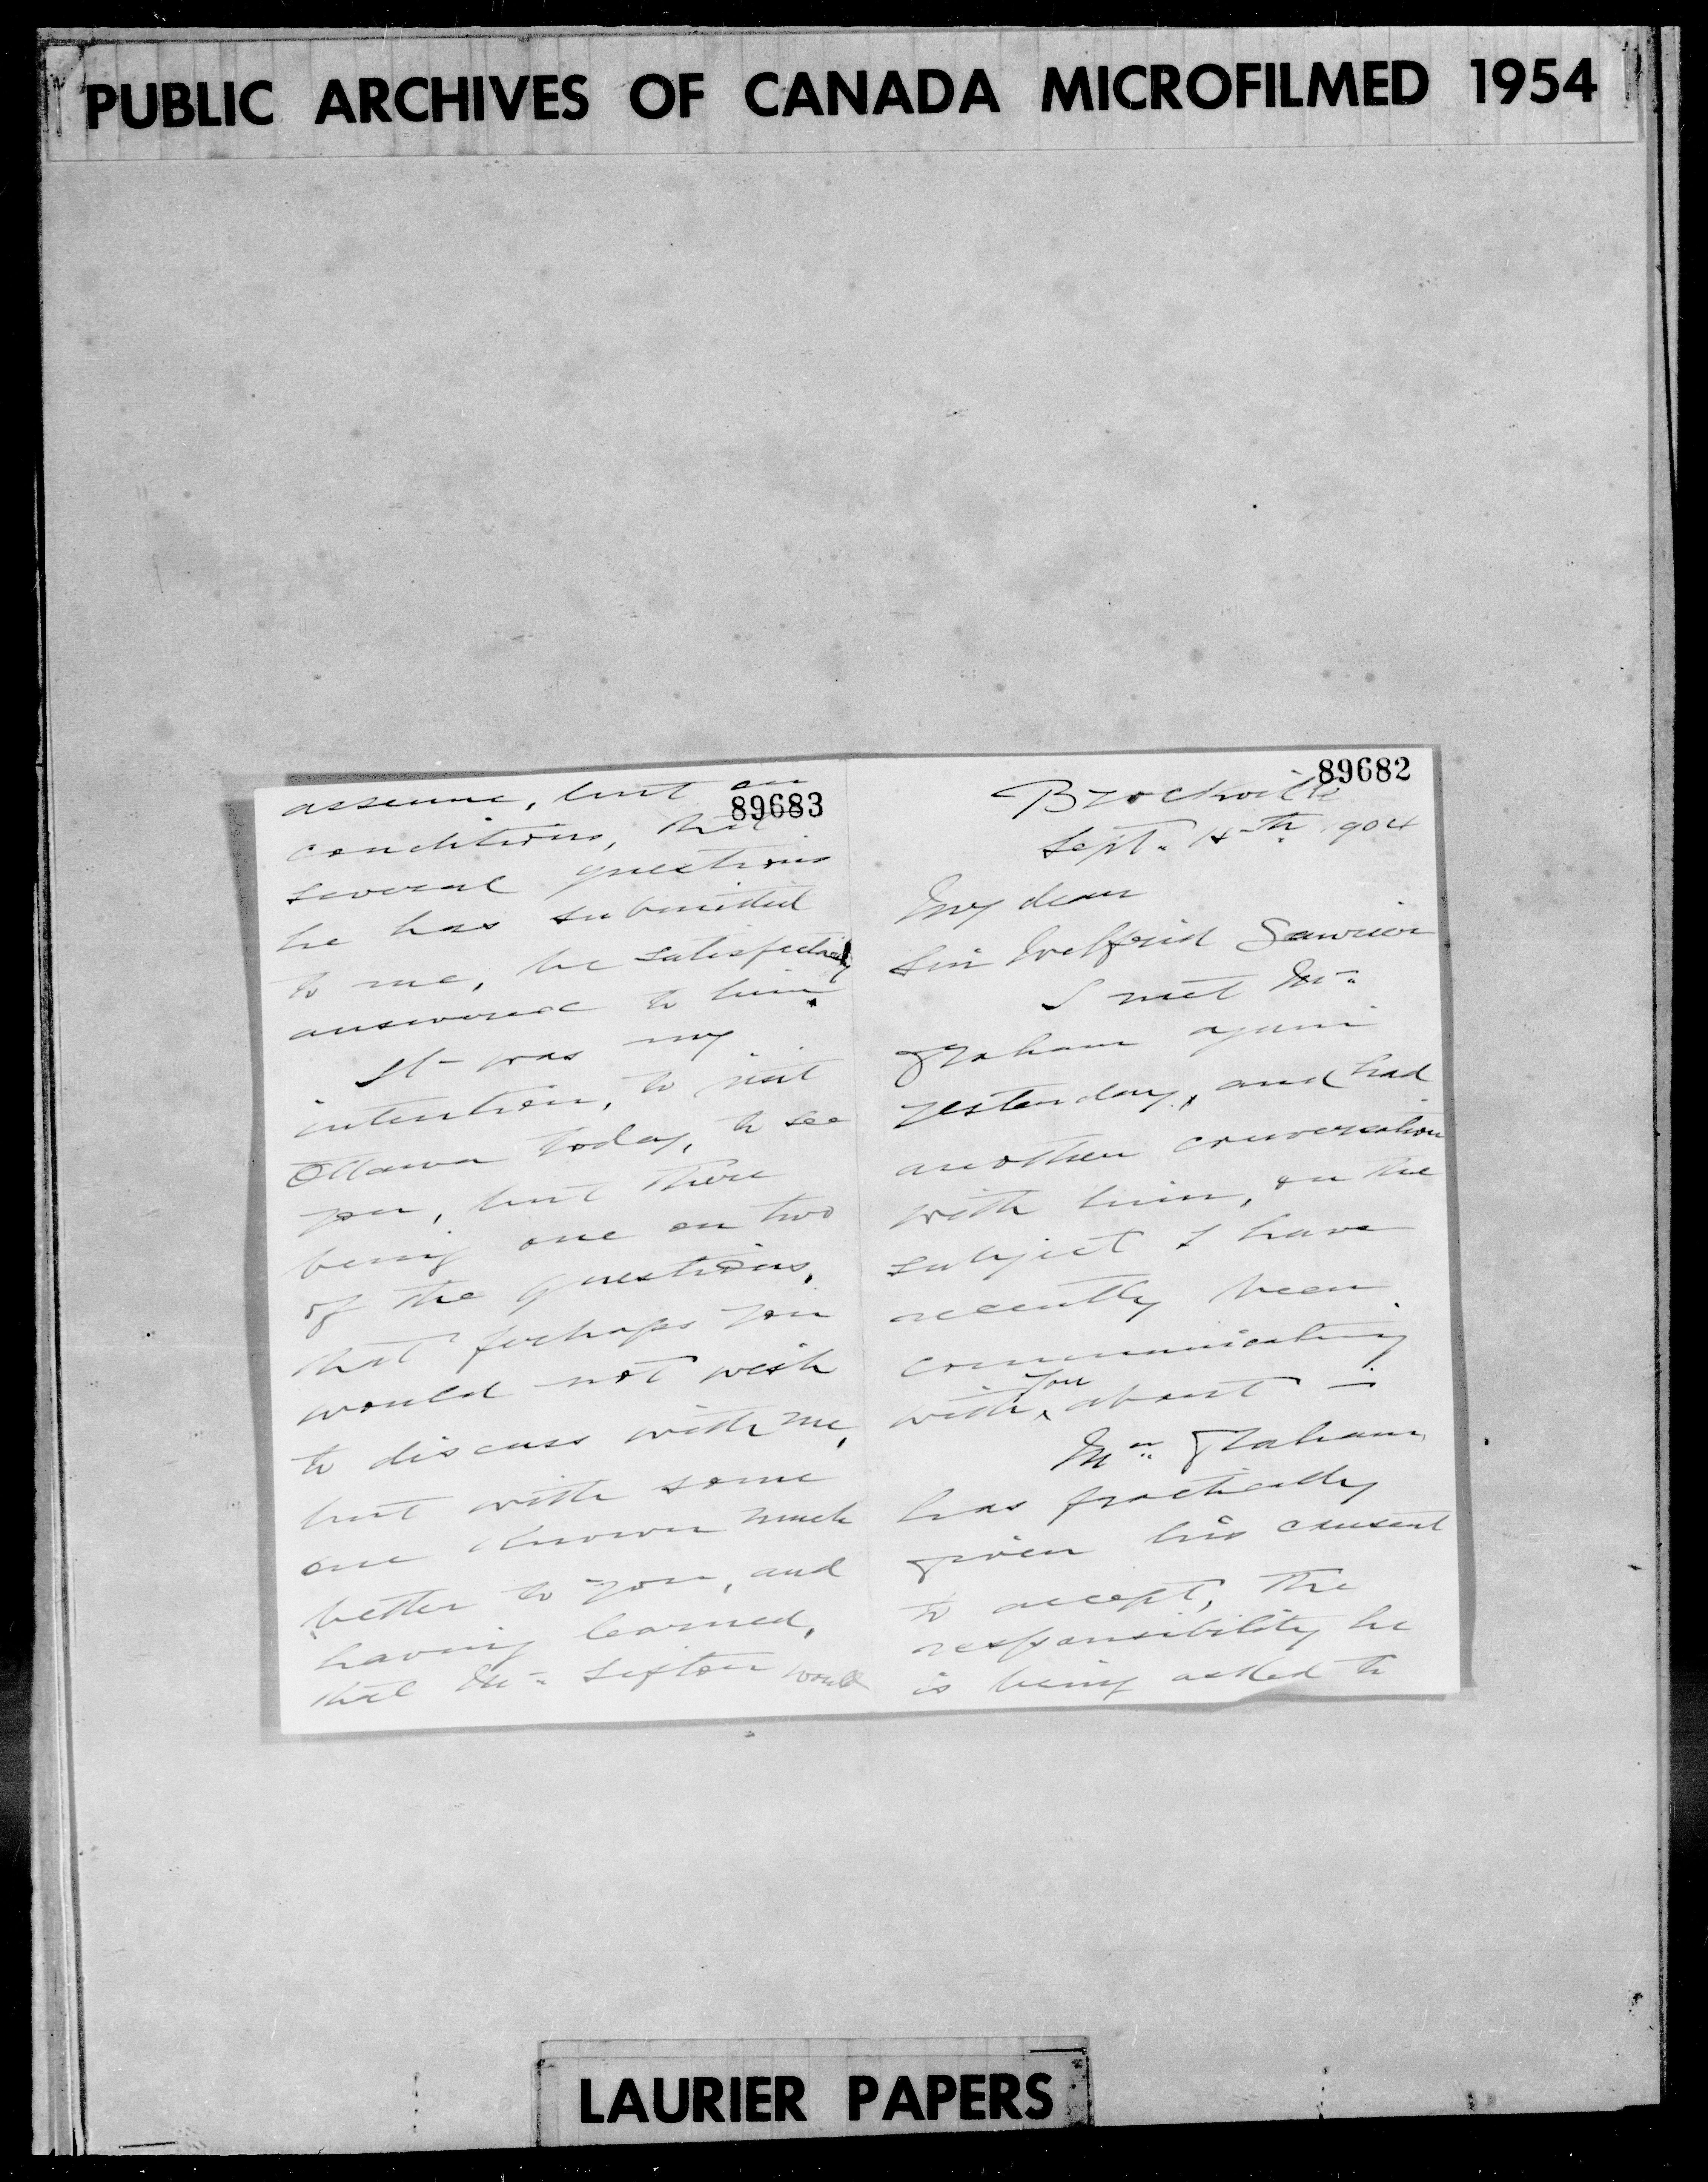 PUBLIC ARCHIVES OF CANADA MICROFILMED 1954
89682
Brockville
Sept. 14th 1904
My dear
Sir Wilfrid Laurier
I met Mr.
Graham again
yesterday, and had
another conversation
with him, on the
subject I have
recently been
communicating
with you about —
Mr. Graham,
has practically
given his consent
to accept, the
responsibility he
is being asked to
89683
assume, but on
conditions, that
several questions
he has submitted
to me, be satisfactorily
answered to him.
It was my
intention, to visit
Ottawa today, to see
you, but there
being one or two
of the questions,
that perhaps you
would not wish
to discuss with me,
but with some
one known much
better to you, and
having learned,
that Mr. Sifton would
LAURIER PAPERS